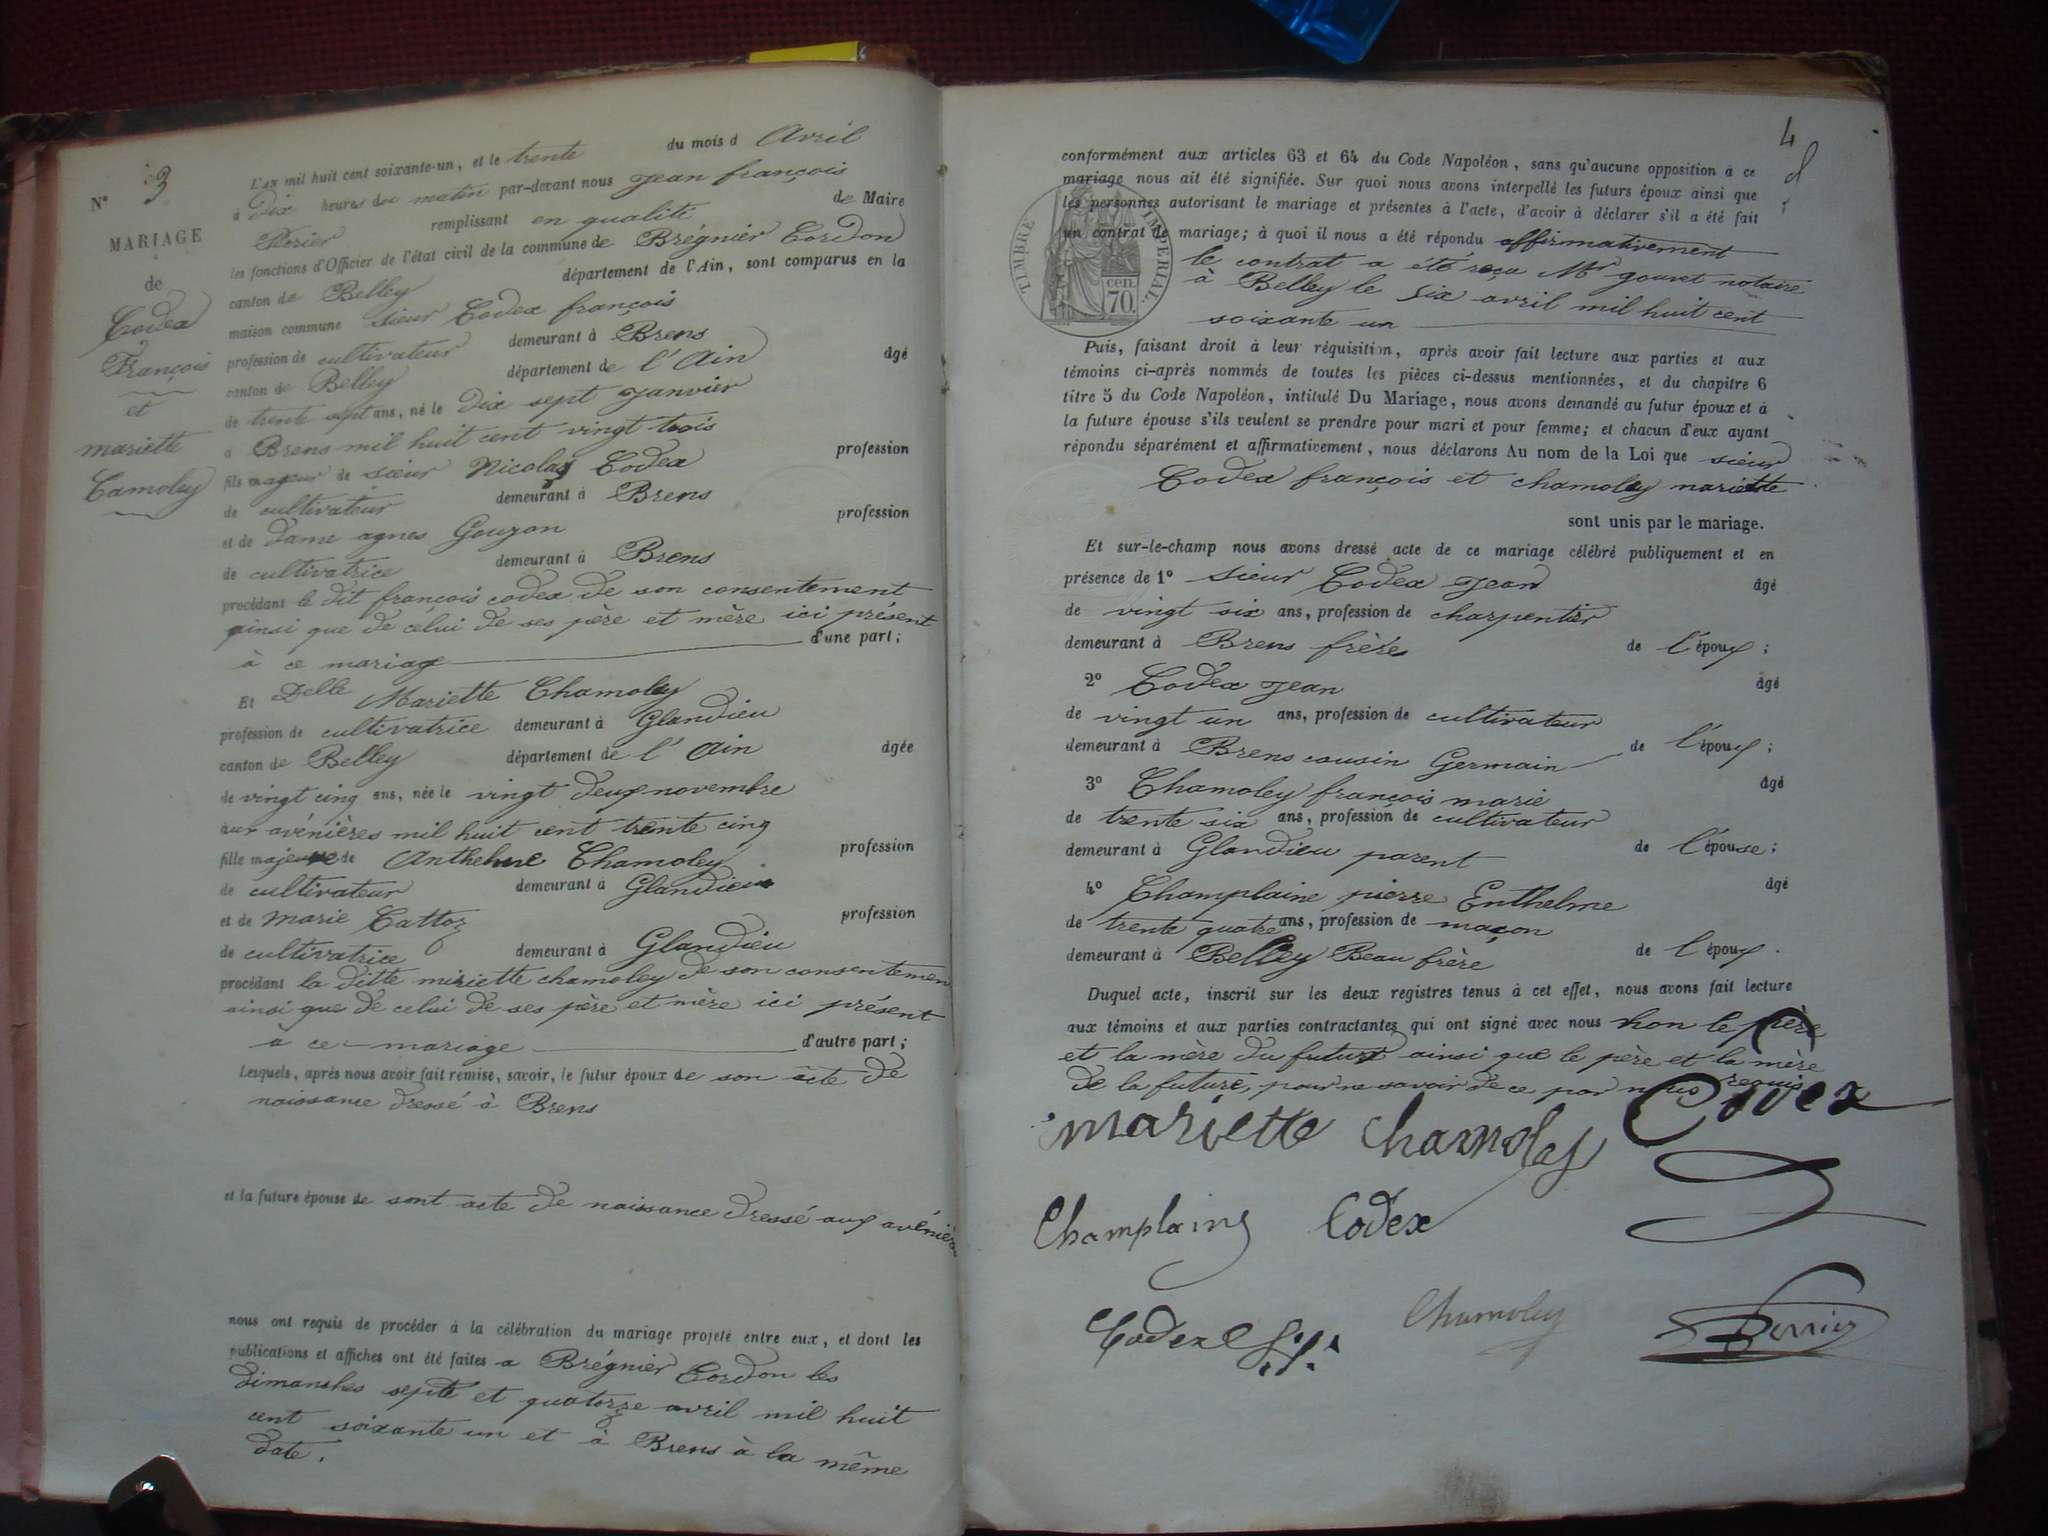 N° 3
MARIAGE
de
Codex
François
et
mariette
Camoley
L'AN mil huit cent soixante-un, et le trente du mois d Avril
à Dix heures du matin par-devant nous Jean françois
Perier remplissant en qualité de Maire
les fonctions d'Officier de l'état civil de la commune de Brégnier Cordon
canton de Belley département de l'Ain, sont comparus en la
maison commune sieur Codex françois
profession de cultivateur demeurant à Brens
canton de Belley département de l'Ain âgé
de trente sept ans, né le Dix sept Janvier
à Brens mil huit cent vingt trois
fils majeur de sieur Nicolas Codex profession
de cultivateur demeurant à Brens
et de Dame agnes Gouzon profession
de cultivatrice demeurant à Brens
procédant le dit françois codex de son consentement
ainsi que de célui de ses père et mère ici présent
à ce mariage d'une part;
Et Delle Mariette Chamoley
profession de cultivatrice demeurant à Glandieu
canton de Belley département de l'Ain âgée
de vingt cinq ans, née le vingt deux novembre
aux avénières mil huit cent trente cinq
fille majeure de Anthelme Chamoley profession
de cultivateur demeurant à Glandieu
et de Marie Cattoz profession
de cultivatrice demeurant à Glandieu
procédant la ditte mariette chamoley de son consentemen
ainsi que de celui de ses père et mère ici présent
à ce mariage d'autre part;
Lesquels, après nous avoir fait remise, savoir, le futur époux de son acte de
naissance dressé à Brens
et la future épouse de sont acte de naissance dressé aux avénières
nous ont requis de procéder à la célébration du mariage projeté entre eux, et dont les
publications et affiches ont été faites a Brégnier Cordon les
dimanches septe et quatorze avril mil huit
cent soixante un et à Brens à la même
date.
4
conformément aux articles 63 et 64 du Code Napoléon, sans qu'aucune opposition à ce
mariage nous ait été signifiée. Sur quoi nous avons interpellé les futurs époux ainsi que
les personnes autorisant le mariage et présentes à l'acte, d'avoir à déclarer s'il a été fait
un contrat de mariage; à quoi il nous a été répondu affirmativement
le contrat a été reçu Mr gouvet notaire
à Belley le six avril mil huit cent
soixante un
TIMBRE IMPÉRIAL.
70. cen.
Puis, faisant droit à leur réquisition, après avoir fait lecture aux parties et aux
témoins ci-après nommés de toutes les pièces ci-dessus mentionnées, et du chapitre 6
titre 5 du Code Napoléon, intitulé Du Mariage, nous avons demandé au futur époux et à
la future épouse s'ils veulent se prendre pour mari et pour femme; et chacun d'eux ayant
répondu séparément et affirmativement, nous déclarons Au nom de la Loi que sieur
Codex françois et chamoley mariette
sont unis par le mariage.
Et sur-le-champ nous avons dressé acte de ce mariage célébré publiquement et en
présence de 1° Sieur Codex Jean âgé
de vingt six ans, profession de charpentier
demeurant à Brens frère de l'époux;
2° Codex Jean âgé
de vingt un ans, profession de cultivateur
demeurant à Brens cousin Germain de l'époux;
3° Chamoley françois marie âgé
de trente six ans, profession de cultivateur
demeurant à Glandieu parent de l'épouse;
4° Champlaine pierre Enthelme âgé
de trente quatre ans, profession de maçon
demeurant à Belley Beau frère de l'époux.
Duquel acte, inscrit sur les deux registres tenus à cet effet, nous avons fait lecture
aux témoins et aux parties contractantes qui ont signé avec nous hon le père
et la mère du futur ainsi que le père et la mère
de la future, pour ne savoir de ce par nous requis
mariette Chamoley Codex
Champlaing Codex
Codex Chamoley Perrier